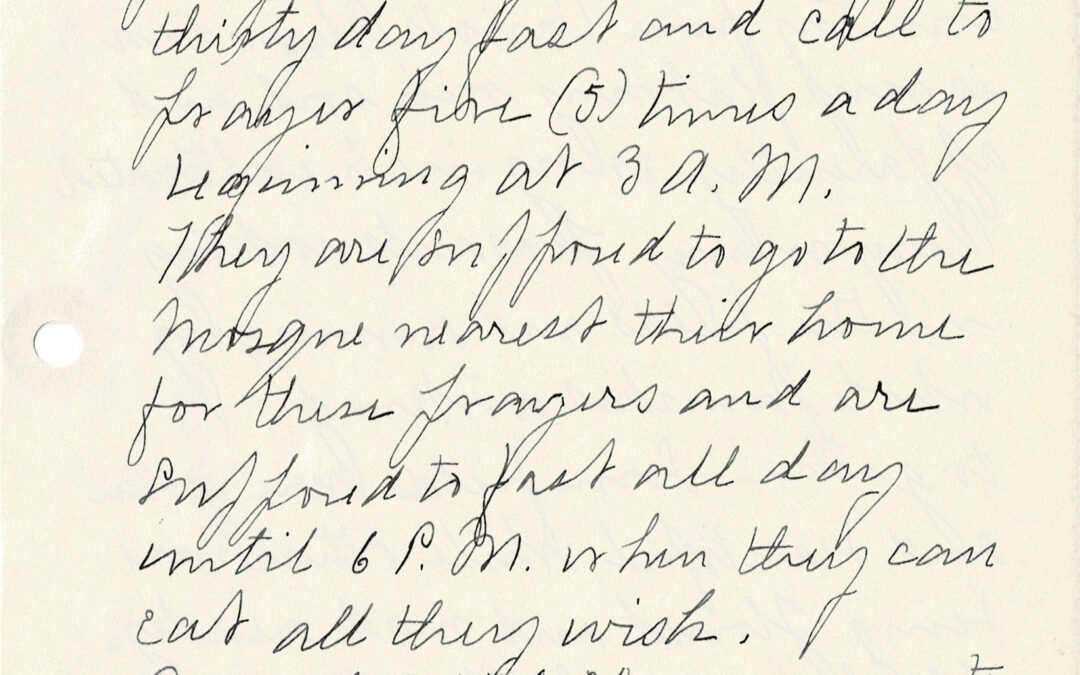 thirty day fast and call to
prayer five (5) times a day
beginning at 3 A.M.
They are supposed to go to the
Mosque nearest their home
for these prayers and are
supposed to fast all day
until 6 P.M. when they can
eat all they wish.